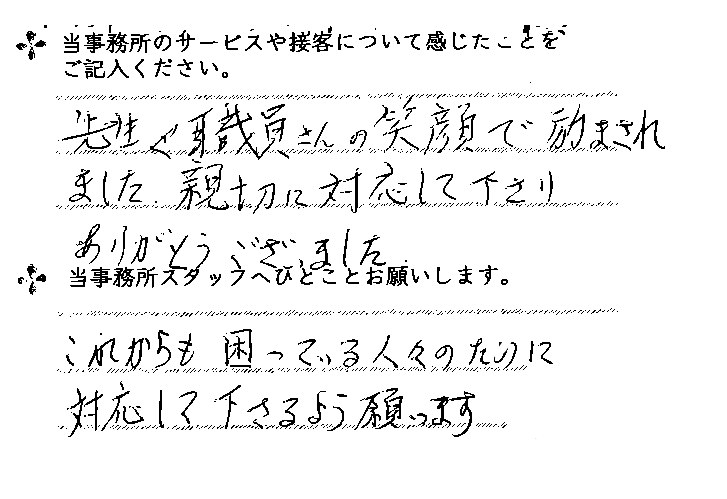 当事務所のサービスや接客について感じたことを
ご記入ください。
先生や職員さんの笑顔で励まされ
ました。親切に対応して下さり
ありがとうございました
当事務所スタッフへひとことお願いします。
これからも困っている人々のために
対応して下さるよう願います